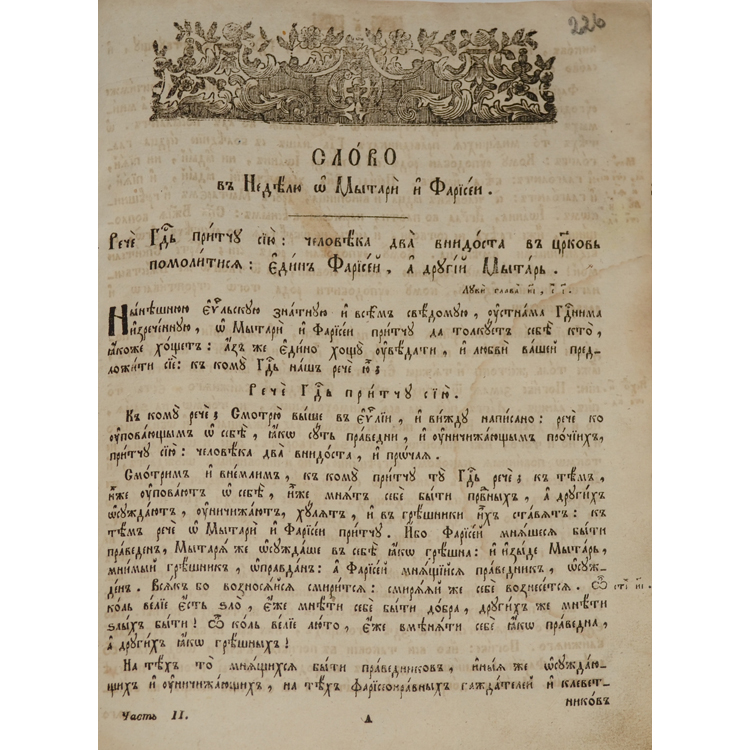 226
СЛО́ВО
въ Недѣ́лю ѡ҆ Мытарѝ и҆ Фарїсе́и.
Речѐ Гдⷭ҇ь при́тчу сїю̀: человѣ́ка два̀ внидо́ста въ цр҃ковь
помоли́тися: є҆ди́нъ Фарїсе́й, а҆ другі́й Мыта́рь.
Луки̂ глава̀ и҃і, і҃.
Ны́нѣшнюю є҆ѵⷢ҇льскую зна́тную и҆ всѣ́мъ свѣ́домую, ѹ҆стна́ма Гдⷭ҇нима
и҆зрече́нную, ѡ҆ Мытарѝ и҆ Фарїсе́и при́тчу да толку́етъ себѣ̀ кто̀,
ꙗ҆́коже хо́щетъ: а҆́зъ же є҆ди́но хощу̀ ѹ҆вѣ́дати, и҆ любвѝ ва́шей пред-
ложи́ти сїѐ: къ кому̀ Гдⷭ҇ь на́шъ речѐ ю҆̀;
Речѐ Гдⷭ҇ь при́тчу сїю̀.
Къ кому̀ речѐ; Смотрю̀ вы́ше въ є҆ѵⷢ҇лїи, и҆ ви́жду напи́сано: речѐ ко
ѹ҆пова́ющымъ ѡ҆ себѣ̀, ꙗ҆́кѡ сꙋ́ть пра́ведни, и҆ ѹ҆ничижа́ющымъ про́чїихъ,
при́тчу сїю̀: человѣ́ка два̀ внидо́ста, и҆ про́чая.
Смо́тримъ и҆ вне́млимъ, къ кому̀ при́тчу ту̀ Гдⷭ҇ь речѐ; къ тѣ́мъ,
и҆̀же ѹ҆пова́ютъ ѡ҆ себѣ̀, и҆̀же мня́тъ себѐ бы́ти прⷡ҇ныхъ, а҆ други́хъ
ѡ҆сужда́ютъ, ѹ҆ничижа́ютъ, ху́лятъ, и҆ въ грѣ́шники и҆́хъ ста́вятъ: къ
тѣ́мъ речѐ ѡ҆ Мытарѝ и҆ Фарїсе́и при́тчу. И҆́бо Фарїсе́й мня́шеся бы́ти
пра́веденъ, Мытаря́ же ѡ҆сужда́ше въ себѣ̀ ꙗ҆́кѡ грѣ́шна: и҆ и҆зы́де Мыта́рь,
мни́мый грѣ́шникъ, ѡ҆правда́нъ: а҆ Фарїсе́й мня́щїйся пра́ведникъ, ѡ҆суж-
де́нъ. Вся́къ бо вознося́йся смири́тся: смиря́яй же себѐ вознесе́тся. Ѽ стⷯ и҃і.
ко́ль ве́лїе є҆́сть ѕло̀, є҆́же мнѣ́ти себѐ бы́ти добра̀, други́хъ же мнѣ́ти
ѕлы́хъ бы́ти! Ѽ ко́ль ве́лїе лю́то, є҆́же вмѣня́ти себѐ ꙗ҆́кѡ пра́ведна,
а҆ други́хъ ꙗ҆́кѡ грѣ́шныхъ!
На тѣ́хъ то мня́щихся бы́ти пра́ведниковъ, и҆ны́я же ѡ҆сужда́ю-
щихъ и҆ ѹ҆ничижа́ющихъ, на тѣ́хъ Фарїсеонра́вныхъ гажда́телей и҆ клевет-
нико́въ
Часть II.
А